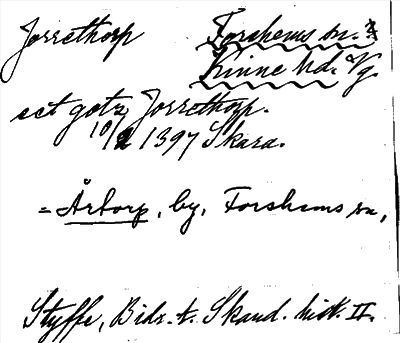 Jorrethorp Forshems sn.
Kinne hd. Vg.
eet gotz Jorrethorp.
10/2 1397 Skara.
= Årtorp, by, Forshems sn,
Styffe, Bidr. t. Skand. hist. II.